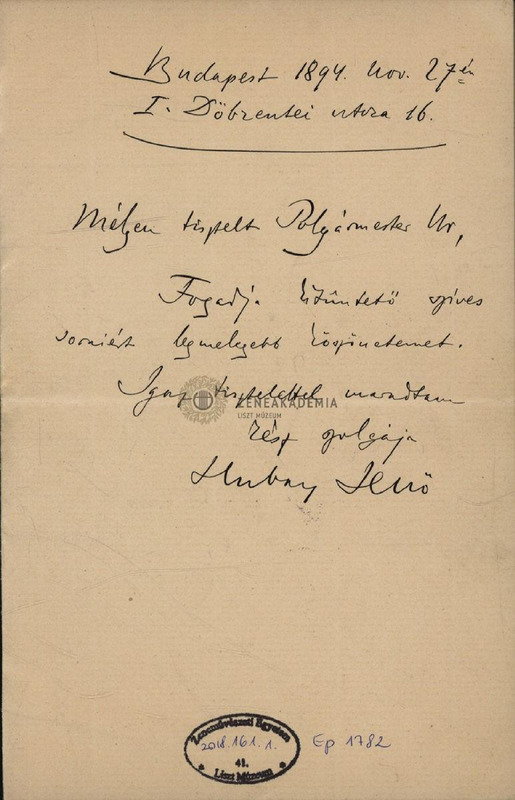 Budapest 1894. Nov. 27én
I. Döbrentei utcza 16.
Mélyen tisztelt Polgármester Ur,
Fogadja kitüntető szives
soraiért legmelegebb köszönetemet.
Igaz tisztelettel maradtam
kész szolgája
Hubay Jenő
ZENEAKADÉMIA
LISZT MÚZEUM
Zeneművészeti Egyetem
2018.161.1.
41.
Liszt Múzeum
Ep 1782